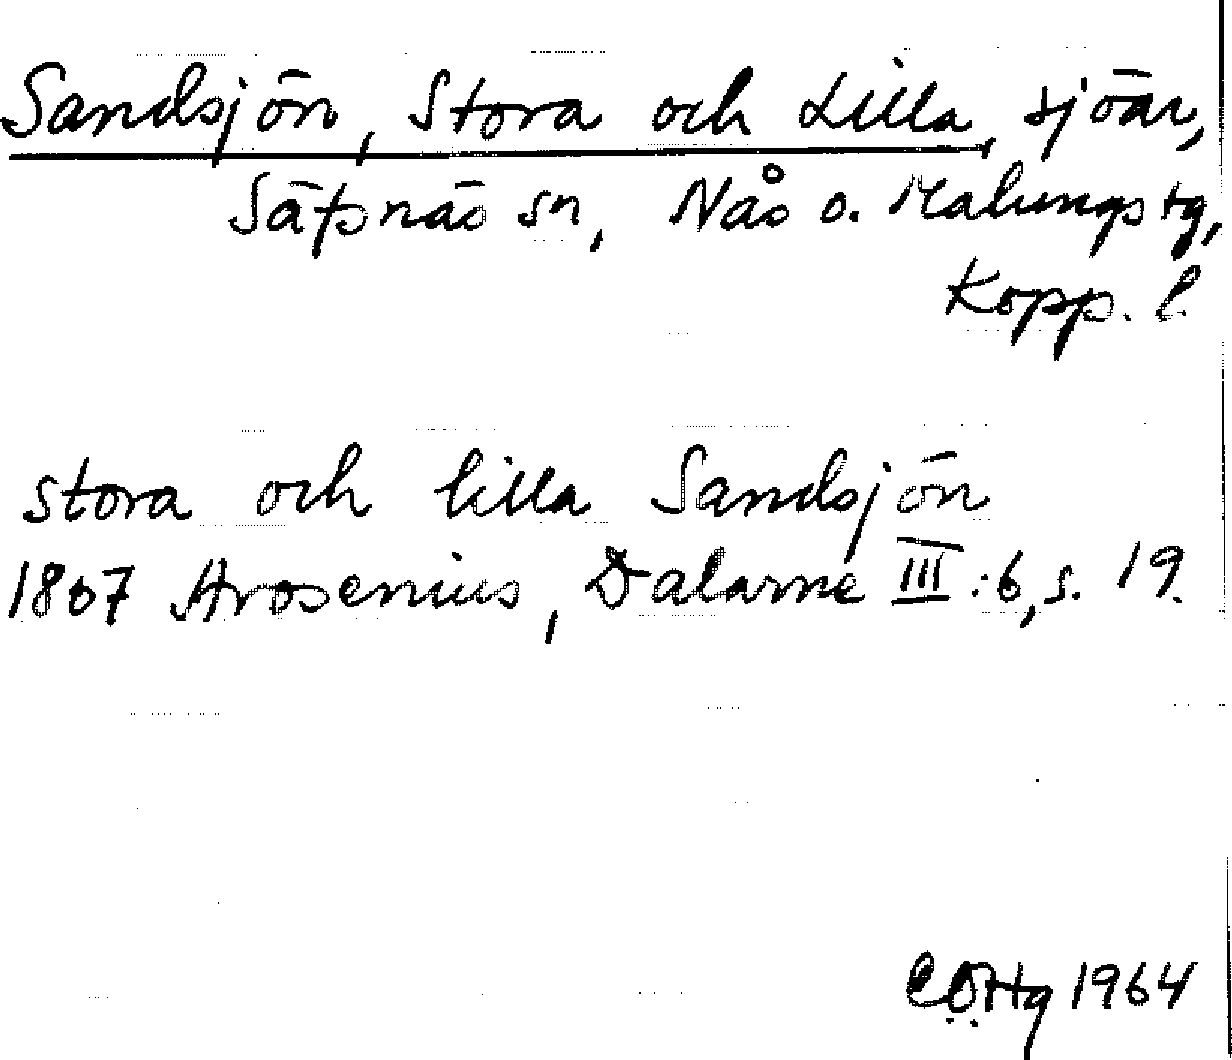 Sandsjön, Stora och Lilla, sjöar,
Säfsnäs sn, Nås o. Malungs tg,
Kopp. l.
stora och lilla Sandsjön
1867 Arosenius, Dalarne III:6, s. 19.
1964